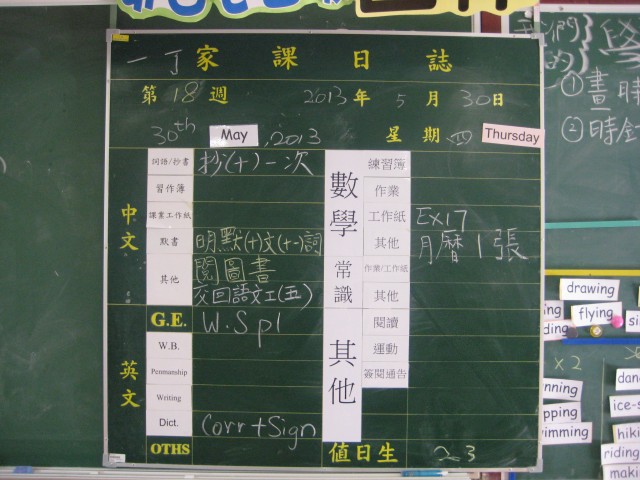 一丁 家課日誌
第 18 週 2013 年 5 月 30 日
30th May, 2013 星期 四 Thursday
中文
詞語/抄書 抄(十)一次
習作簿
課業工作紙
默書 明默(十)文(十一)詞
其他 閱圖書
交回語文工(五)
英文
G.E. W.S p1
W.B.
Penmanship
Writing
Dict. Corr + Sign
OTHS
數學
練習簿
作業
工作紙 Ex17
其他 月曆1張
常識
作業/工作紙
其他
其他
閱讀
運動
簽閱通告
值日生 23
們
的
學
① 畫 時
②時
drawing
flying
ding
x 2
nning
pping
imming
dan
ice-s
hiki
riding
maki